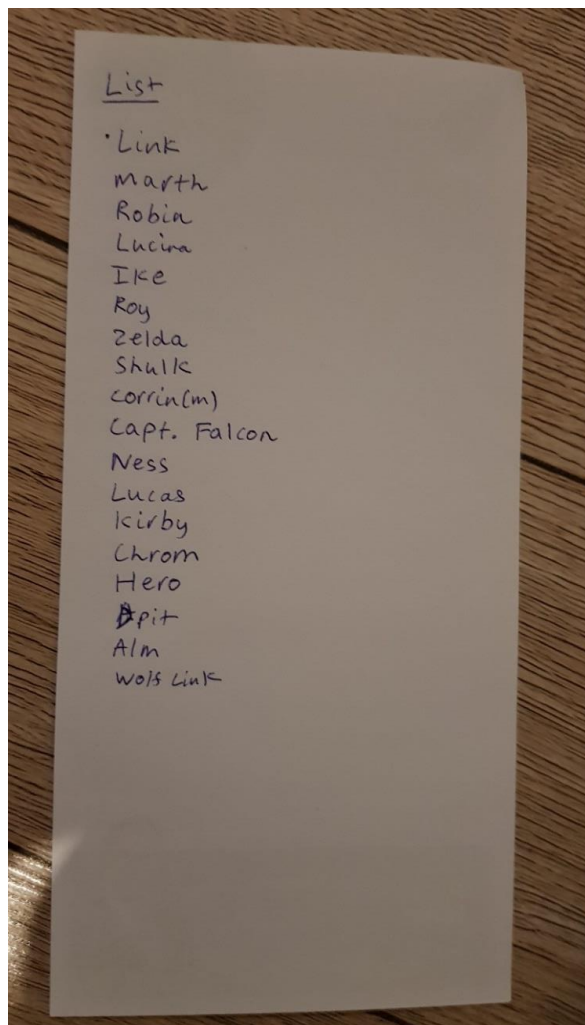 List
·Link
Marth
Robin
Lucina
Ike
Roy
Zelda
Shulk
corrin(m)
Capt. Falcon
Ness
Lucas
Kirby
Chrom
Hero
pit
Alm
Wolf Link